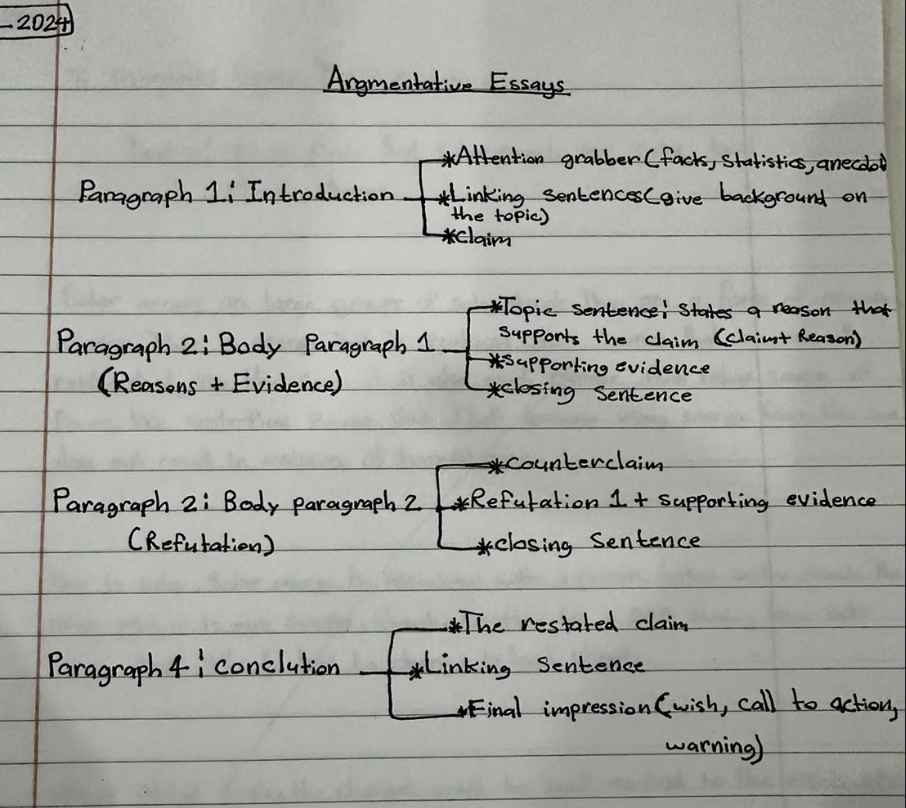 -2024
Argmentative Essays
*Attention grabber (facts, statistics, anecdot
Paragraph 1: Introduction
*Linking sentences (give background on
the topic)
*claim
*Topic sentence: states a reason that
supports the claim (claim+ Reason)
Paragraph 2: Body Paragraph 1
*supporting evidence
(Reasons + Evidence)
*closing sentence
*counterclaim
Paragraph 2: Body paragraph 2
*Refutation 1 + supporting evidence
(Refutation)
*closing sentence
*The restated claim
Paragraph 4: conclution
*Linking sentence
*Final impression (wish, call to action,
warning)